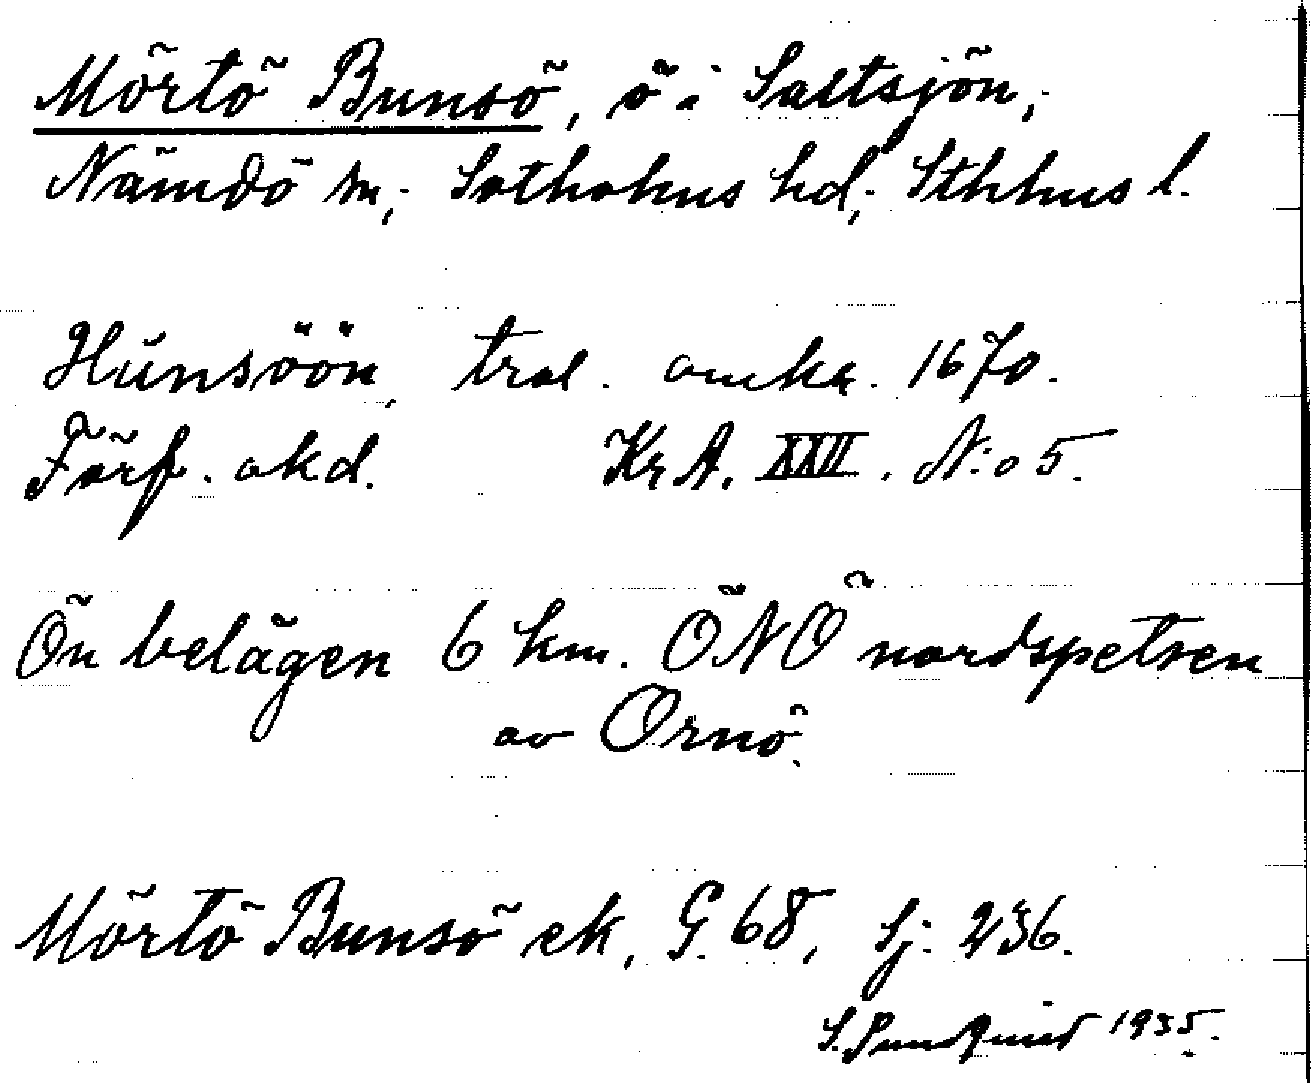 Mörtö Bunsö, ö i Saltsjön,
Nämdö sn, Sotholms hd, Sthlms l.
Hunsöön, trol. omkr. 1670.
Förf. okd. KrA. XXVI. N:o 5.
Ön belägen 6 km. ÖNÖ nordspetsen
av Ornö.
Mörtö Bunsö ek, G. 68, Sj: 236.
S. 1935.